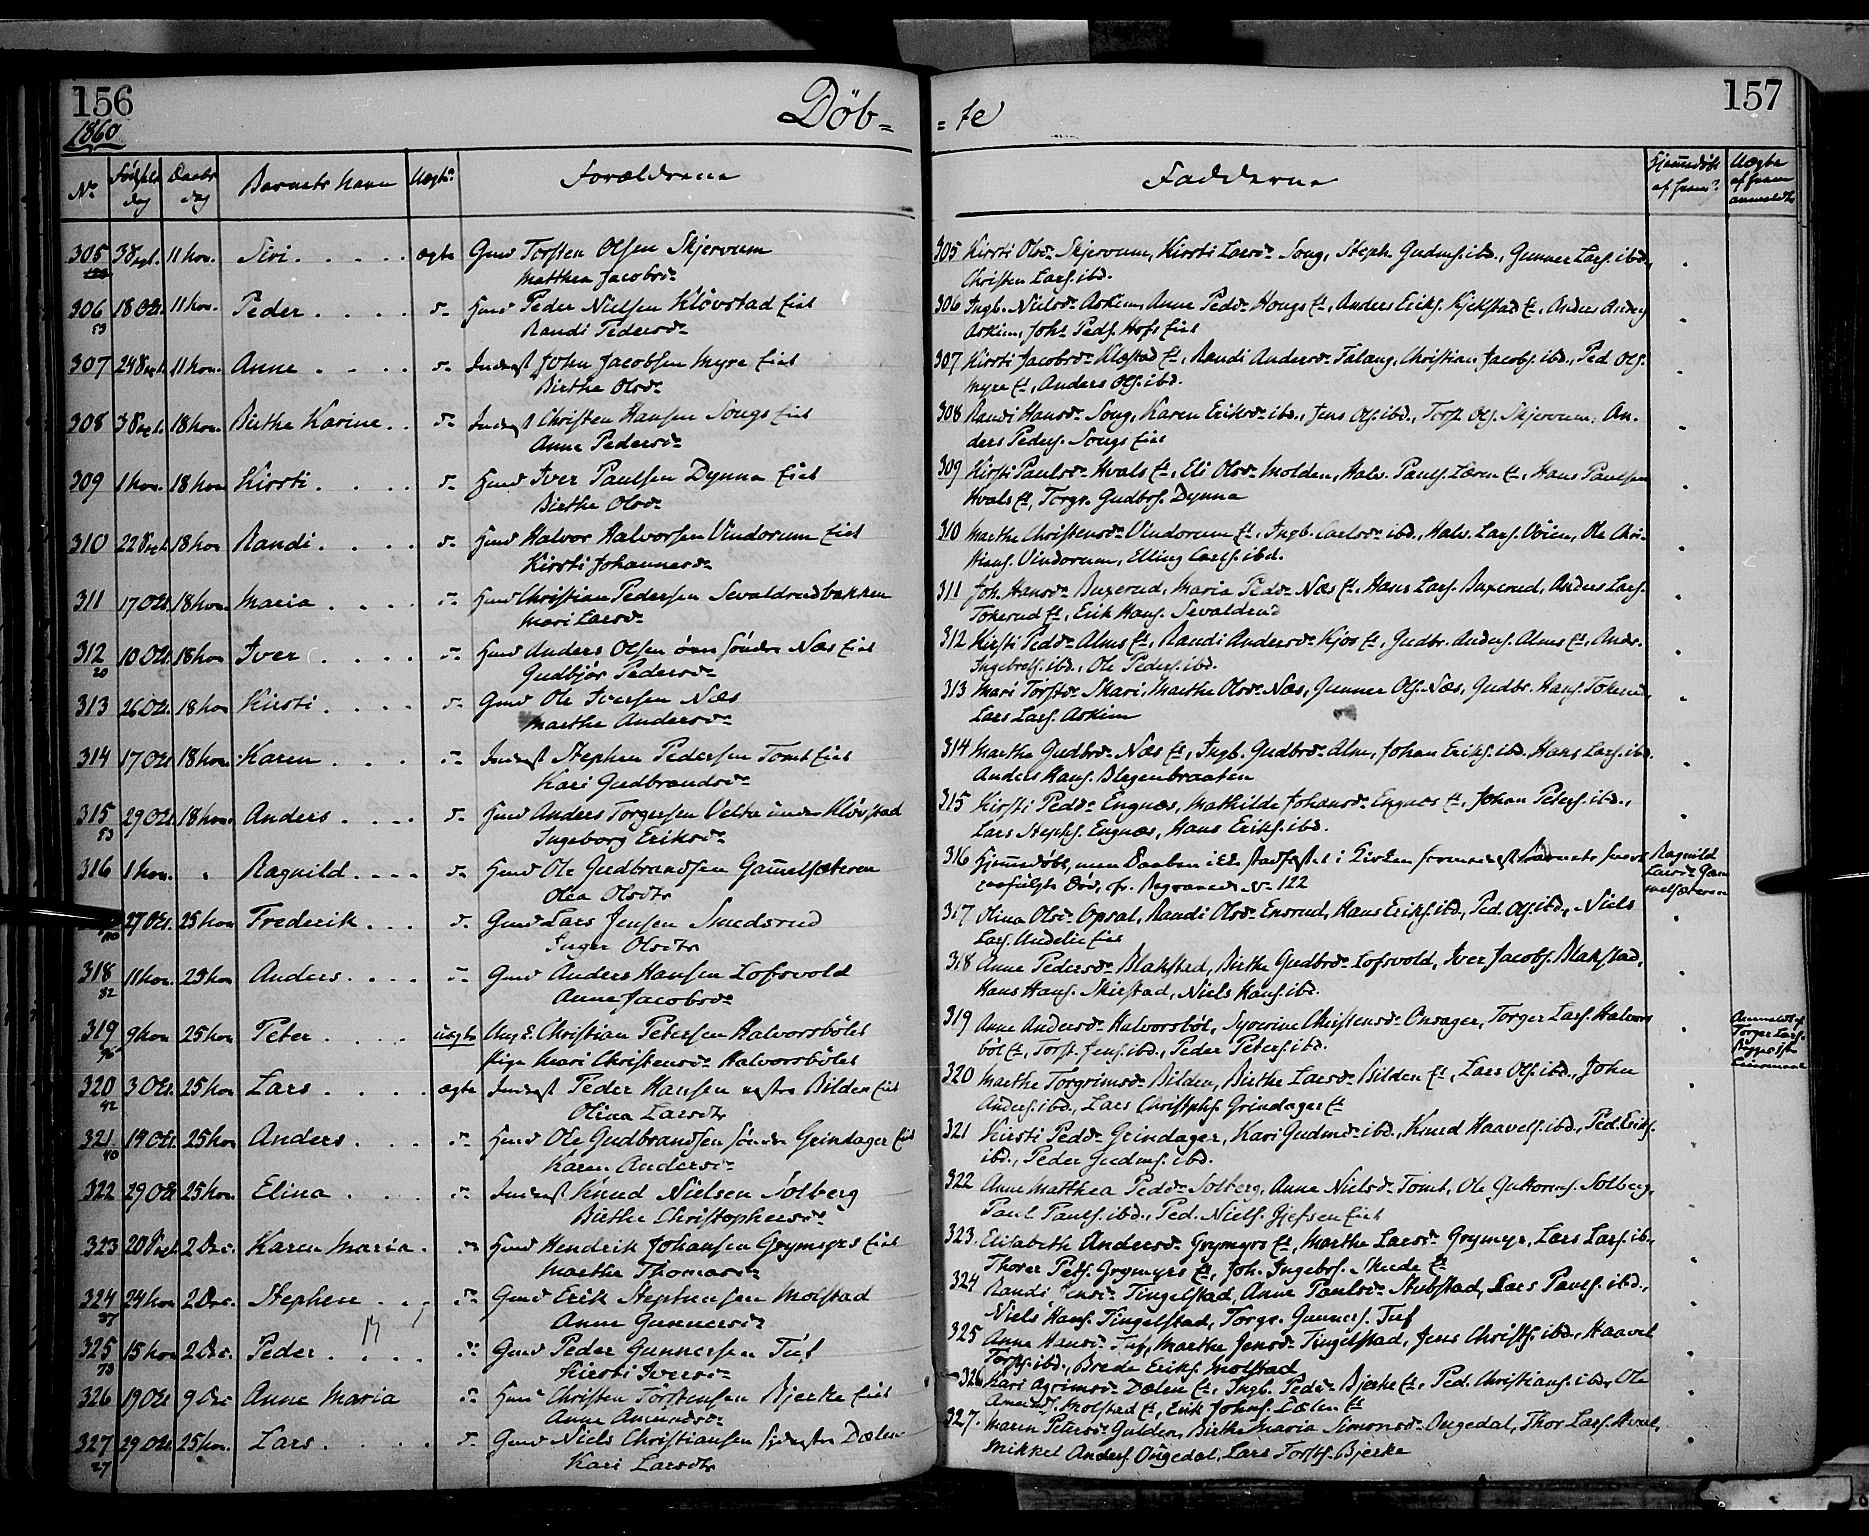 156
1860
Døb-
Nº Fødsels dag Daabs dag Barnets Navn Ægte? Forældrene
305 3 Sept. 11 Nov. Siri ægte Gmd Torsten Olsen Skjervum
Matthea Jacobsdr
306 18 Oct. 11 Nov. Peder Hmd Peder Nielsen Kløvstad Eiet
53 Randi Pedersdr
307 24 Sept. 11 Nov. Anne Inderst John Jacobsen Myre Eiet
Birthe Olsdr
308 3 Sept. 18 Nov. Birthe Karine Inderst Christen Hansen Songs Eiet
Anne Pedersdr
309 1 Nov. 18 Nov Kirsti Hmd Iver Paulsen Dynna Eiet
Birthe Olsdr
310 22 Sept. 18 Nov Randi Hmd Halvor Halvorsen Vindorum Eiet
Kirsti Johannesdr
311 17 Oct. 18 Nov. Maria Hmd Christian Pedersen Sevaldrudbakken
Mari Larsdr
312 10 Oct. 18 Nov. Iver Hmd Anders Olsen søndre Næs Eiet
20 Gudbjør Pedersdr
313 26 Oct. 18 Nov Kirsti Gmd Ole Iversen Næs
Marthe Andersdr
314 17 Oct. 18 Nov. Karen Inderst Stephen Pedersen Tomt Eiet
Kari Gudbrandsdr
315 29 Oct. 18 Nov. Anders Hmd Anders Torgersen Velta under Kløvstad
53 Ingeborg Eriksdr
316 1 Nov. Ragnild Hmd Ole Gudbrandsen Gamelsæteren
Olea Olsdtr
27 Oct. 25 Nov Frederik Gmd Lars Jensen Smedsrud
Inger Olsdtr
318 11 Nov. 25 Nov Anders Gmd Anders Hansen Lofsvold
82 Anne Jacobsdr
319 9 Nov. 25 Nov Peter uægte Ungk. Christian Petersen Halvorsbølet
Pige Mari Christensdr Halvorsbølet
320 3 Oct. 25 Nov Lars ægte Inderst Peder Hansen vestre Bilden Eiet
42 Olina Larsdtr
321 14 Oct. 25 Nov Anders Hmd Ole Gudbrandsen søndre Grindager Eiet
40 Karen Andersdr
322 29 Oct 25 Nov. Elina Inderst Knud Nielsen Solberg
Birthe Christophersdr
323 20 Sept. 2 Dec. Karen Maria Hmd Hendrik Johansen Grymyrs Eiet
Marthe Thomasdr
324 24 Nov 2 Dec. Stephen Gmd Erik Stephensen Molstad
37 Anne Gunnersdr
325 15 Nov 2 Dec. Peder Gmd Peder Gunnersen Tuf
73 Kirsti Iversdr
326 19 Oct 9 Dec Anne Maria Hmd Christen Torstensen Bjerke Eiet
Anne Amundsdr
327 29 Oct. 25 Nov. Lars Gmd Niels Christiansen Dælen
27 Kari Larsdtr
157
-te
Fadderne Hjemmedøbt af hvem? Uægte af hvem anmeldt
305 Kirsti Olsdr Skjervum, Kirsti Larsdr Song, Steph. Gudms. ibd., Gunner Lars. ibd.,
Christen Lars. ibd.
306 Ingb. Nielsdr Askim, Anne Pedsdr Hougs Et, Anders Eriks. Kjekstad Et, Anders Anders
Askim, Johs Peds. Hofs Eiet
307 Kirsti Jacobsdr Klæstad Et, Randi Andersdr Falang, Christian Jacobs. ibd., Ped. Ols.
Myre Et, Anders Ols. ibd.
308 Randi Hansdr Song, Karen Eriksdr ibd., Jens Ols. ibd., Torst. Ols. Skjervum, An-
ders Peders. Songs Eiet
309 Kirsti Paulsdr Hvals Et, Eli Olsdr Molden, Halv. Pauls. Læren Et, Hans Paulsen
Hvals Et, Torgr. Gudbrs. Dynna
310 Marthe Christensdr Vindorum Et, Ingb. Carlsdr ibd., Halv. Lars. Vøien, Ole Chri-
stians. Vindorum, Elling Carls. ibd.
311 Joh. Hansdr Buxerud, Maria Pedsdr Næs Et, Hans Lars. Buxerud, Anders Lars.
Tokerud Et, Erik Hans. Sevaldrud
312 Kirsti Pedsdr Alms Et, Randi Andersdr Kjos Et, Gudbr. Anders. Alms Et, Andr.
Ingebrets. ibd., Ole Peders. ibd.
313 Mari Torstdr Skari, Marthe Olsdr Næs, Gunner Ols. Næs, Gudbr. Hans. Tokerud,
Lars Lars. Askim
314 Marthe Gudbrdr Næs Et, Ingb. Gudbrdr Alm, Johan Eriks. ibd. Hans Lars. ibd.
Anders Hans. Blegenbraaten
315 Kirsti Pedsdr Engnæs, Mathilde Johansdr Engnæs Et, Johan Peters. ibd.,
Lars Stephs. Engnæs, Hans Eriks. ibd.
316 Hjemmedøbt, men Daaben ikke stadfæstet i Kirken formedelst Barnets Ragnild
paafulgte Død, cfr. Begravede Nr 122 Larsdr Gammelsæteren
317 Olina Olsdr Opsal, Randi Olsdr Ensrud, Hans Eriks. ibd., Ped. Ols. ibd., Niels
Lars. Andelie Eiet
318 Anne Pedersdr Blakstad, Birthe Gudbrdr Lofsvold, Iver Jacobs. Blakstad,
Hans Hans. Skirstad, Niels Hans. ibd.
319 Anne Andersdr Halvorsbøl, Syverine Christensdr Onsager, Torger Lars. Halvors- Anmeldt af
bøl Et, Torst. Jens. ibd., Peder Peters. ibd. Torger Lars.
320 Marthe Torgrimsdr Bilden, Birthe Larsdr Bilden Et, Lars Ols. ibd., John
Anders. ibd., Lars Christophs. Grindager Et
321 Kirsti Pedsdr Grindager, Kari Gudmdr ibd., Knud Haavels. ibd., Ped. Eriks.
ibd., Peder Gudms. ibd.
322 Anne Matthea Pedsdr Solberg, Anne Nielsdr Tomt, Ole Guttorms. Solberg,
Paul Pauls. ibd., Ped. Niels. Gjefsen Eiet
323. Elisabeth Andersdr Grymyrs Et, Marthe Larsdr Grymyr, Lars Lars. ib.,
Thorer Peds. Grymyrs Et, Joh. Ingebrs. Skude Et
324 Randi Jensdr Tingelstad, Anne Paulsdr Stubstad, Lars Pauls. ibd.,
Niels Hans. Tingelstad, Torgr. Gunners. Tuf
325 Anne Hansdr Tuf, Marthe Jensdr Tingelstad, Jens Christs. ibd., Haavel
Torsts. ibd., Brede Eriks. Molstad
326 Kari Agrimsdr Dælen Et, Ingb. Pedsdr Bjerke Et, Ped. Christians. ibd., Ole
Amunds. Molstad Et, Erik Johns. Dælen Et
327. Maren Petersdr Gulden, Birthe Maria Simonsdr Ougedal, Thor Lars. Hval,
Mikkel Anders. Ougedal, Lars Torsts. Bjerke